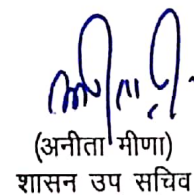 (अनीता मीणा)
शासन उप सचिव